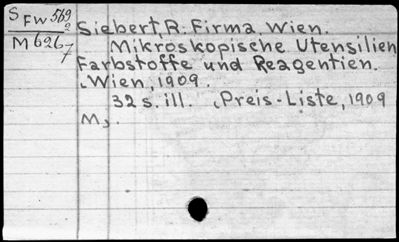 S FW 569 2
M 626 7
Siebert, R. Firma. Wien.
Mikroskopische Utensilien
Farbstoffe und Reagentien.
Wien, 1909.
32 s. ill. (Preis-Liste, 1909